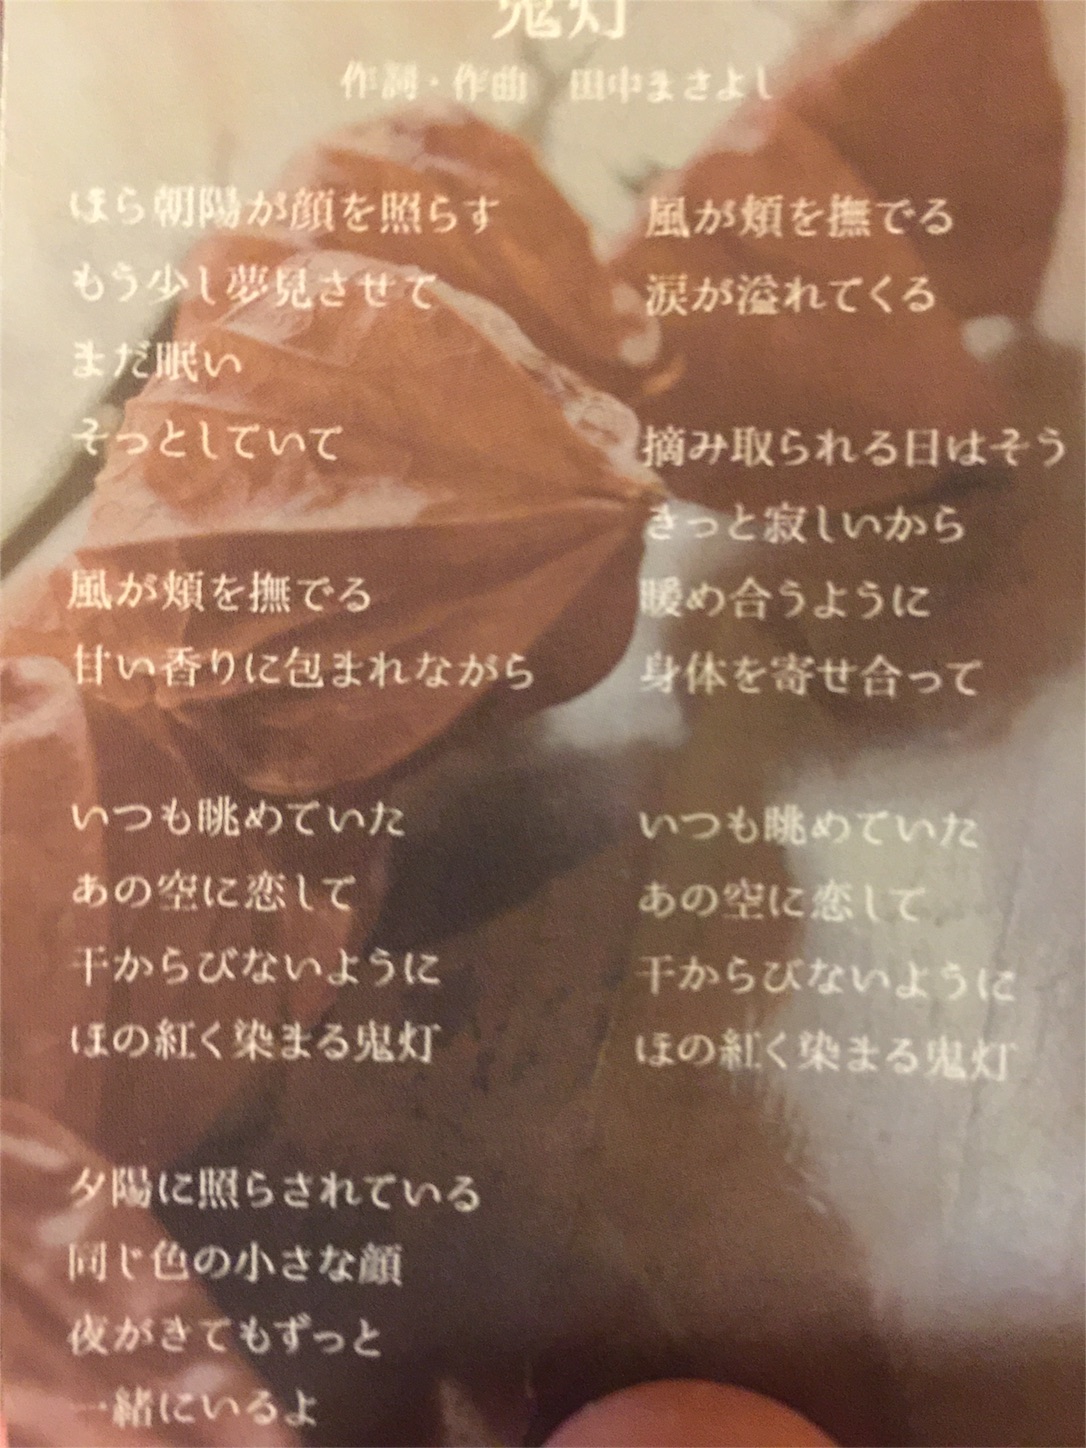 鬼灯
作詞・作曲　田中まさよし
ほら朝陽が顔を照らす
もう少し夢見させて
まだ眠い
そっとしていて
風が頬を撫でる
甘い香りに包まれながら
いつも眺めていた
あの空に恋して
干からびないように
ほの紅く染まる鬼灯
夕陽に照らされている
同じ色の小さな顔
夜がきてもずっと
一緒にいるよ
風が頬を撫でる
涙が溢れてくる
摘み取られる日はそう
きっと寂しいから
暖め合うように
身体を寄せ合って
いつも眺めていた
あの空に恋して
干からびないように
ほの紅く染まる鬼灯